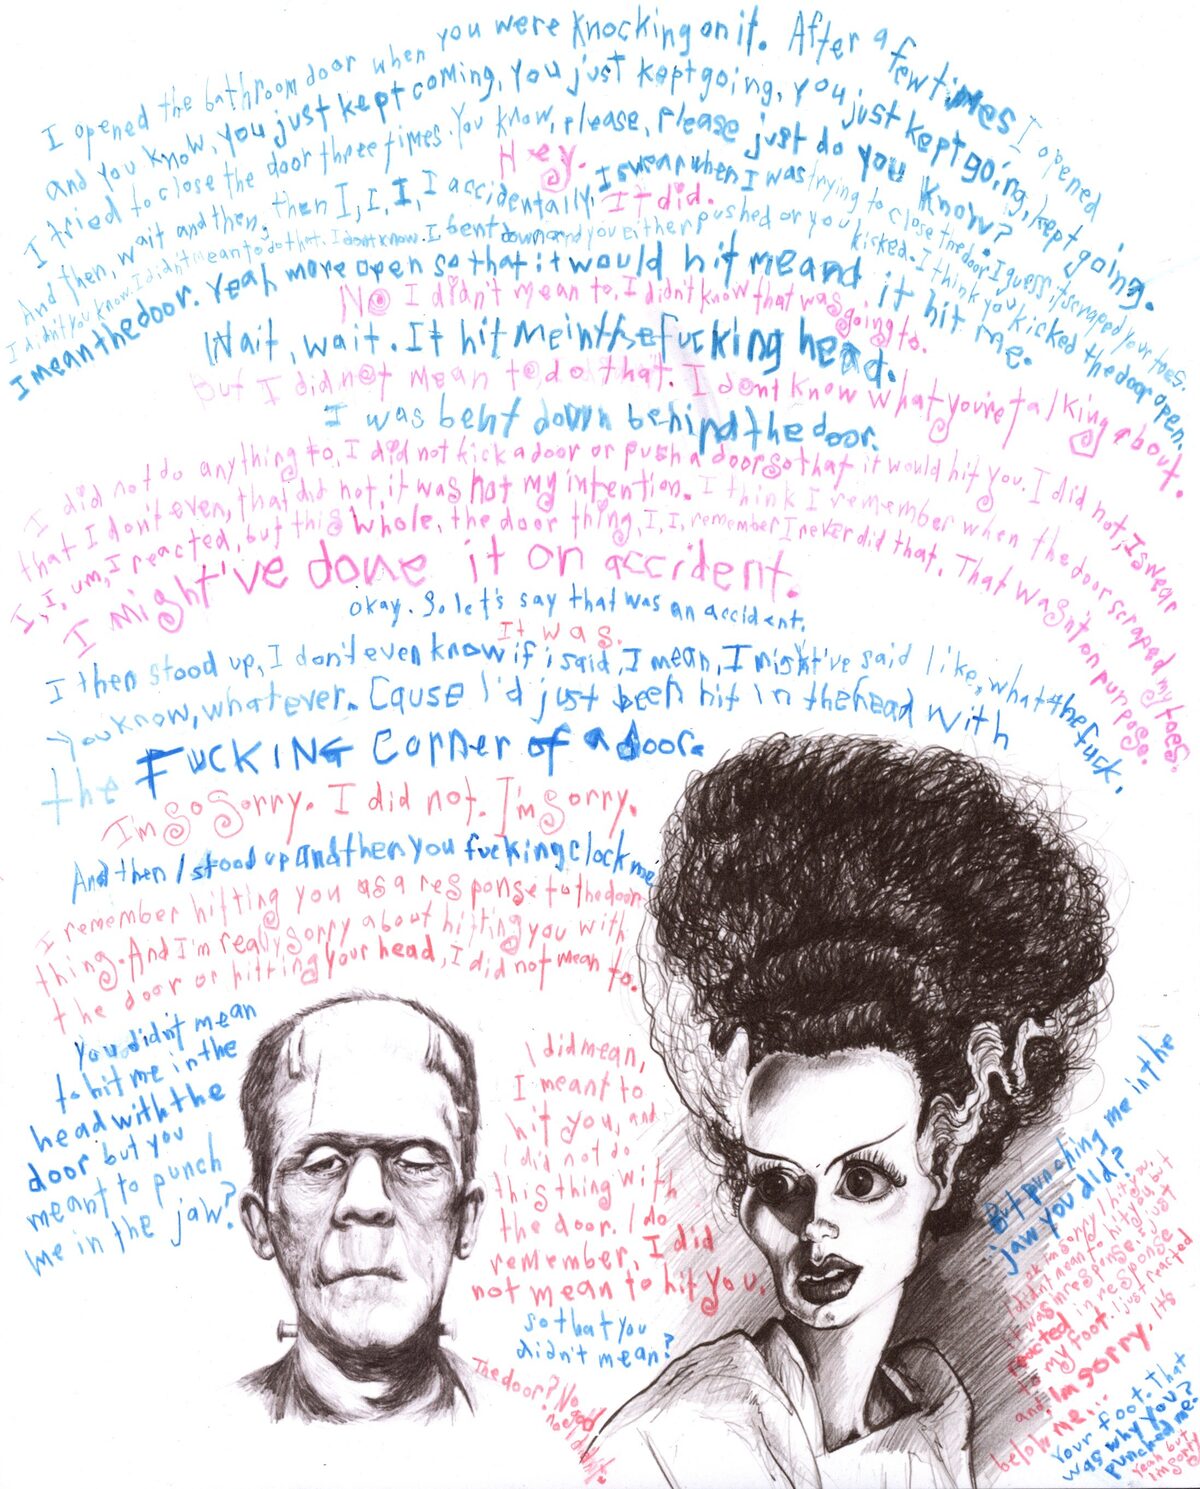 I opened the bathroom door when you were knocking on it. After a few times I opened
and you know, you just kept coming, you just kept going, you just kept going, kept going.
I tried to close the door three times. You know, please, please just do you know?
Hey.
And then, wait and then, then I, I, I, I accidentally, I swear when I was trying to close the door, I guess it scraped your toes.
It did.
I didn't you know. I didn't mean to do that. I don't know. I bent down and you either pushed or you kicked. I think you kicked the door open.
I mean the door. Yeah more open so that it would hit me and it hit me.
No I didn't mean to, I didn't know that was going to.
Wait, wait. It hit me in the fucking head.
But I did not mean to do that. I dont know what you're talking about.
I was bent down behind the door.
I did not do anything to, I did not kick a door or push a door so that it would hit you. I did not, I swear
that I don't even, that did not, it was not my intention. I think I remember when the door scraped my toes.
I, I, um, I reacted, but this whole, the door thing, I, I, remember I never did that. That wasn't on purpose.
I might've done it on accident.
okay. So let's say that was an accident.
It was.
I then stood up, I don't even know if i said, I mean, I might've said like, what the fuck,
you know, whatever. Cause I'd just been hit in the head with
the FUCKING corner of a door.
I'm so sorry. I did not. I'm sorry.
And then I stood up and then you fucking clock me
I remember hitting you as a response to the door
thing. And I'm really sorry about hitting you with
the door or hitting your head, I did not mean to.
You didn't mean
to hit me in the
head with the
door but you
meant to punch
me in the jaw?
I did mean,
I meant to
hit you, and
I did not do
this thing with
the door. I do
remember, I did
not mean to hit you.
so that you
didn't mean?
The door? No
god
no I didn't.
But punching me in the
jaw you did?
ok I'm sorry I hit you,
I didn't mean to hit you but
it was in response. I just
reacted in response
to my foot. I just reacted
and, Im sorry, its
below me...
Your foot. That
was why you
punched me?
Yeah but
I'm sorry